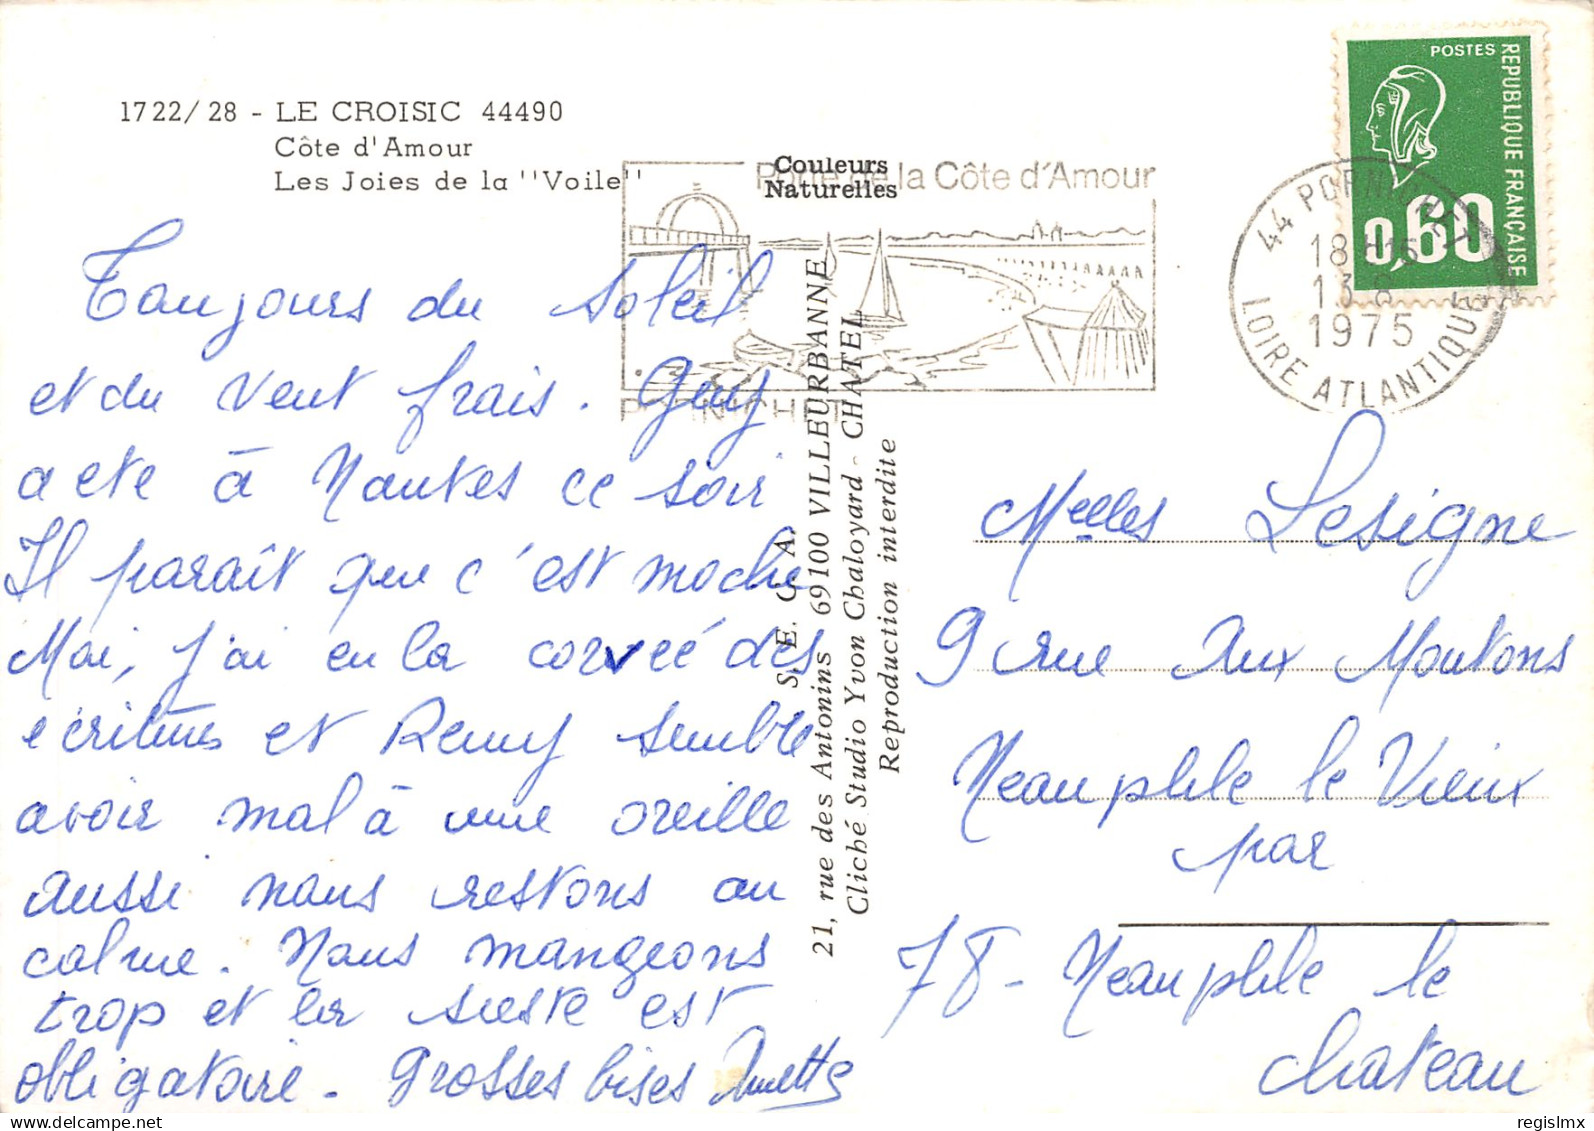 1722/28 - LE CROISIC 44490
Côte d'Amour
Les Joies de la ''Voile''
Couleurs
Naturelles
Porte de la Côte d'Amour
PORNICHET
POSTES
REPUBLIQUE FRANÇAISE
0,60
44 PORNICHET
18 H 15
13 8
1975
LOIRE ATLANTIQUE
Toujours du soleil
et du vent frais. Guy
a été à Nantes ce soir
Il paraît que c'est moche
Moi, j'ai eu la corvée des
écritures et Remy semble
avoir mal à une oreille
aussi nous restons au
calme. Nous mangeons
trop et la sieste est
obligatoire. Grosses bises Annette
S. E. C. A.
21, rue des Antonins - 69100 VILLEURBANNE
Cliché Studio Yvon Chaloyard - CHATEL
Reproduction interdite
Melles Lesigne
9 rue Aux Moutons
Neauphle le Vieux
par
78 - Neauphle le
château
regislmx